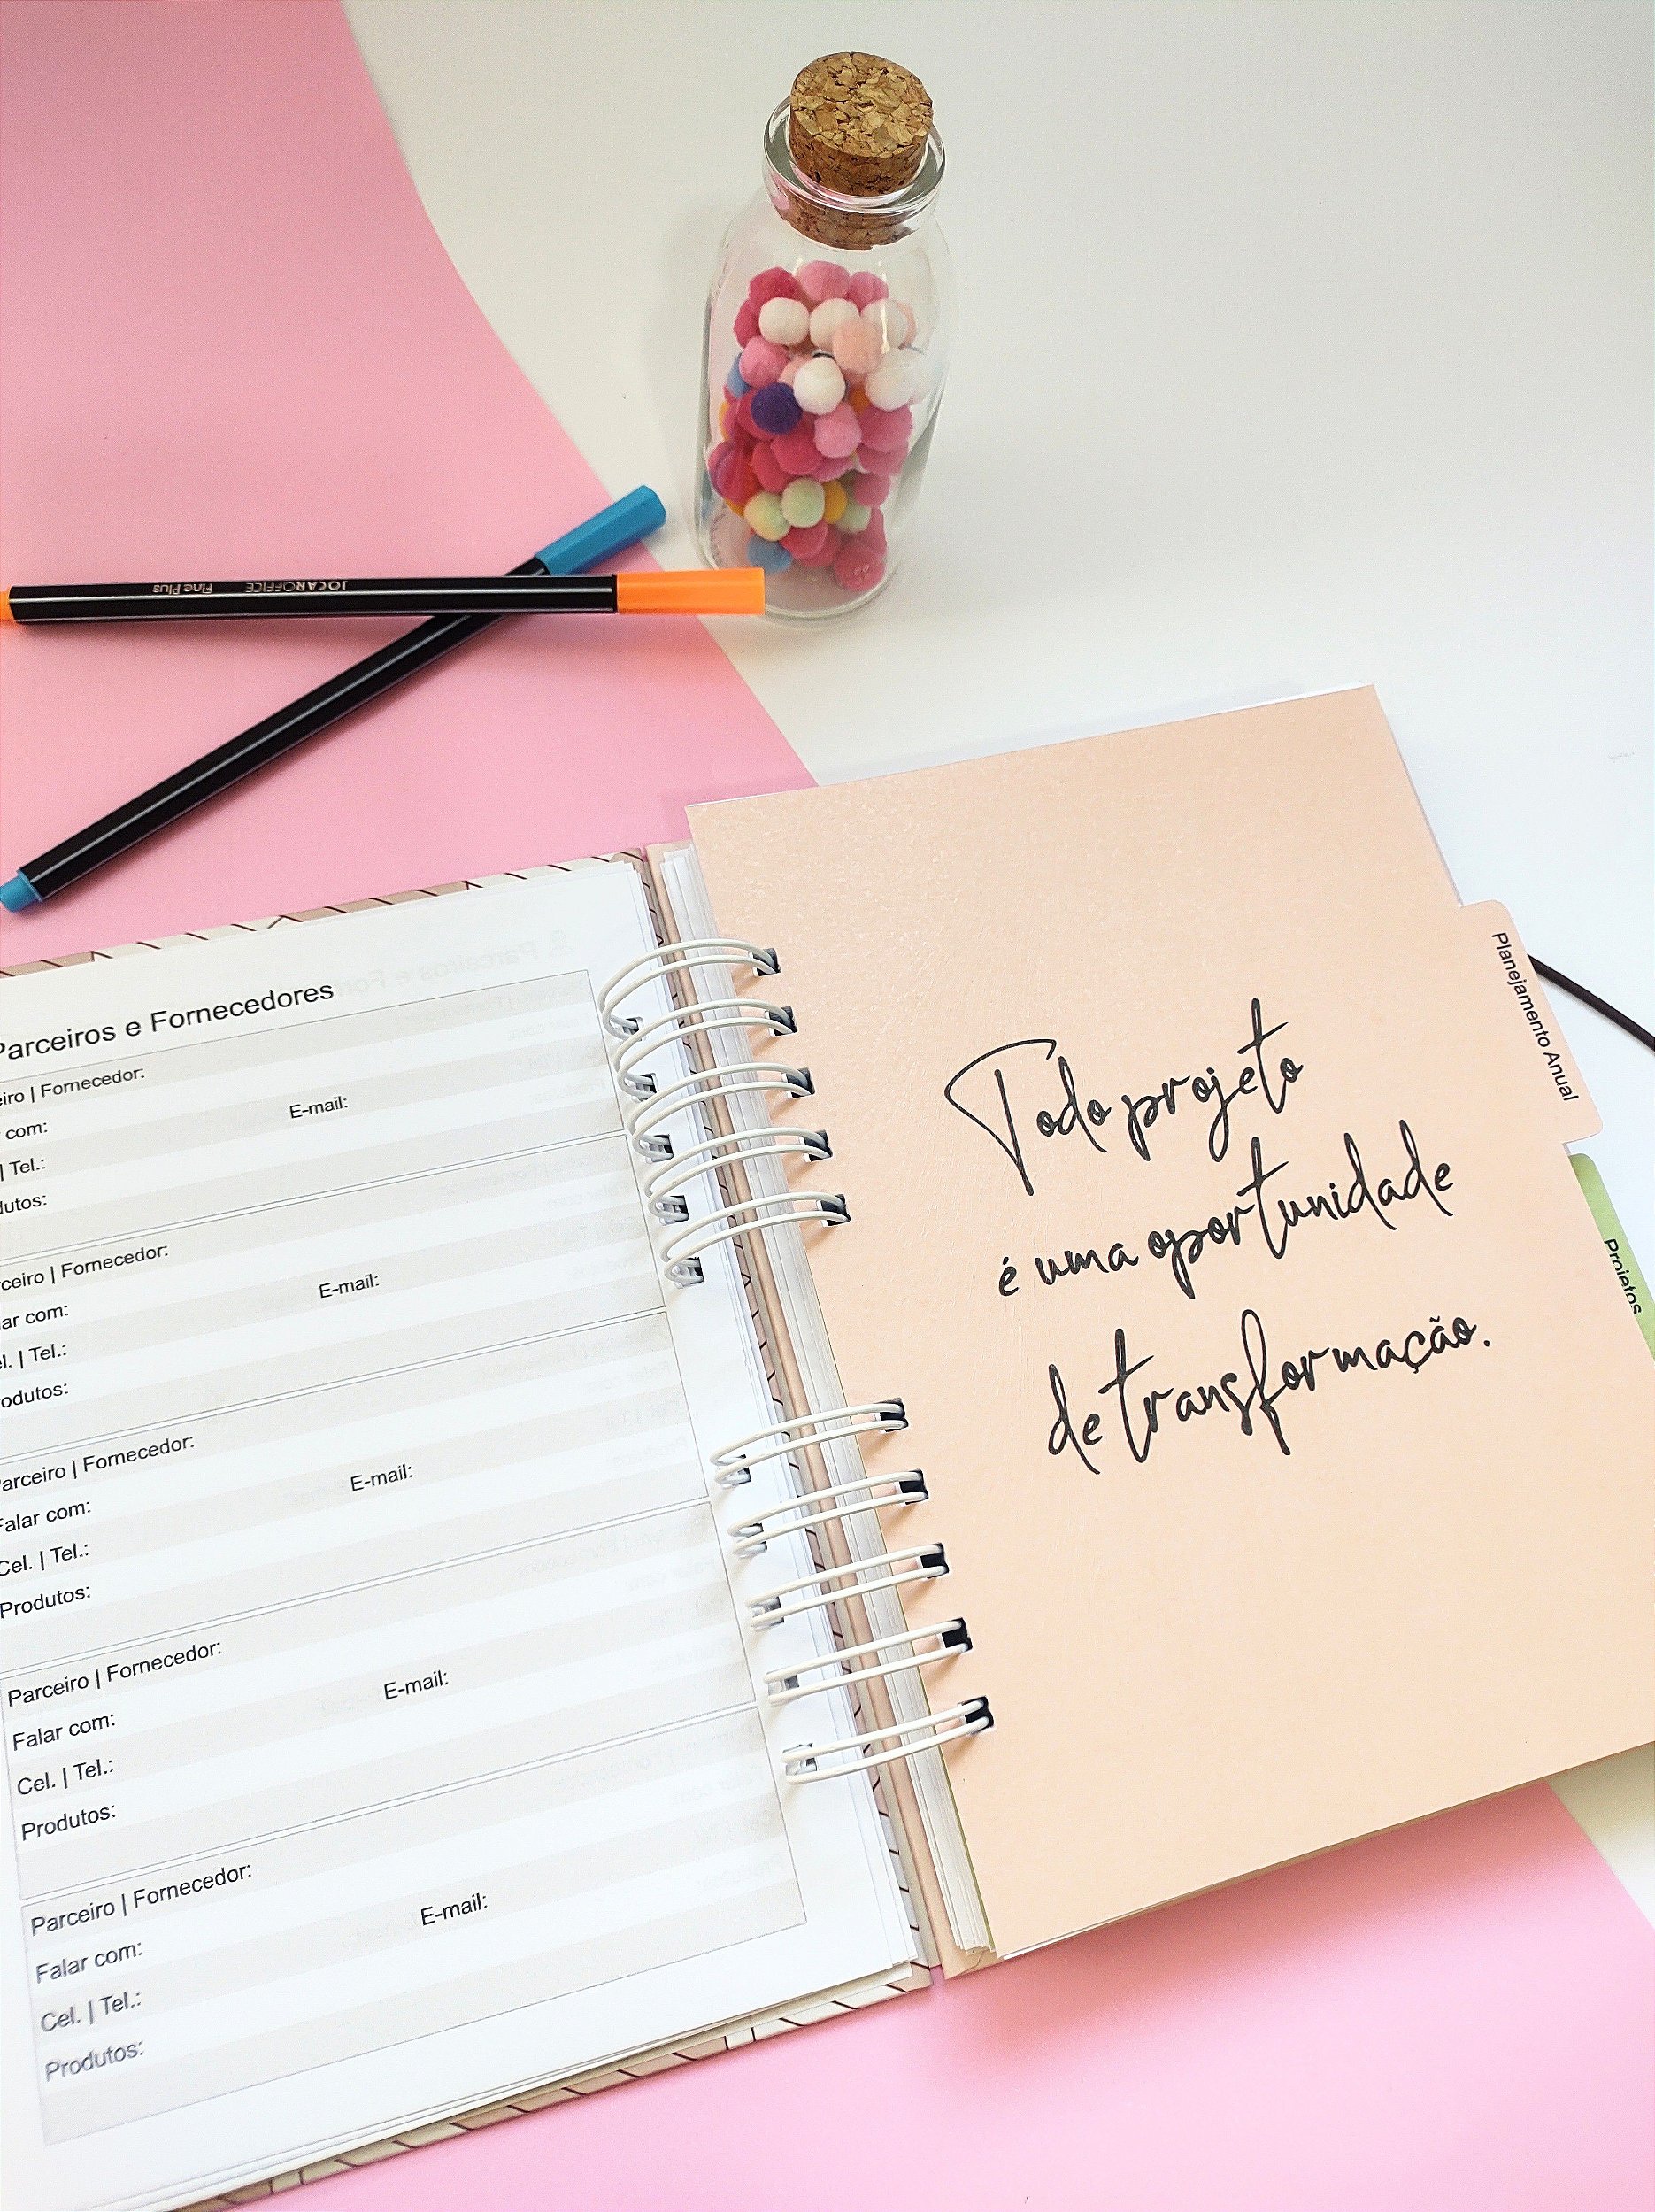 JOCAR OFFICE Fine Plus
Parceiros e Fornecedores
Fornecedor:
com:
E-mail:
| Tel.:
Fornecedor:
E-mail:
| Tel.:
Parceiro | Fornecedor:
Falar com:
E-mail:
Cel. | Tel.:
Produtos:
Parceiro | Fornecedor:
Falar com:
E-mail:
Cel. | Tel.:
Produtos:
Parceiro | Fornecedor:
Falar com:
E-mail:
Cel. | Tel.:
Produtos:
Todo projeto
é uma oportunidade
de transformação.
Planejamento Anual
Projetos